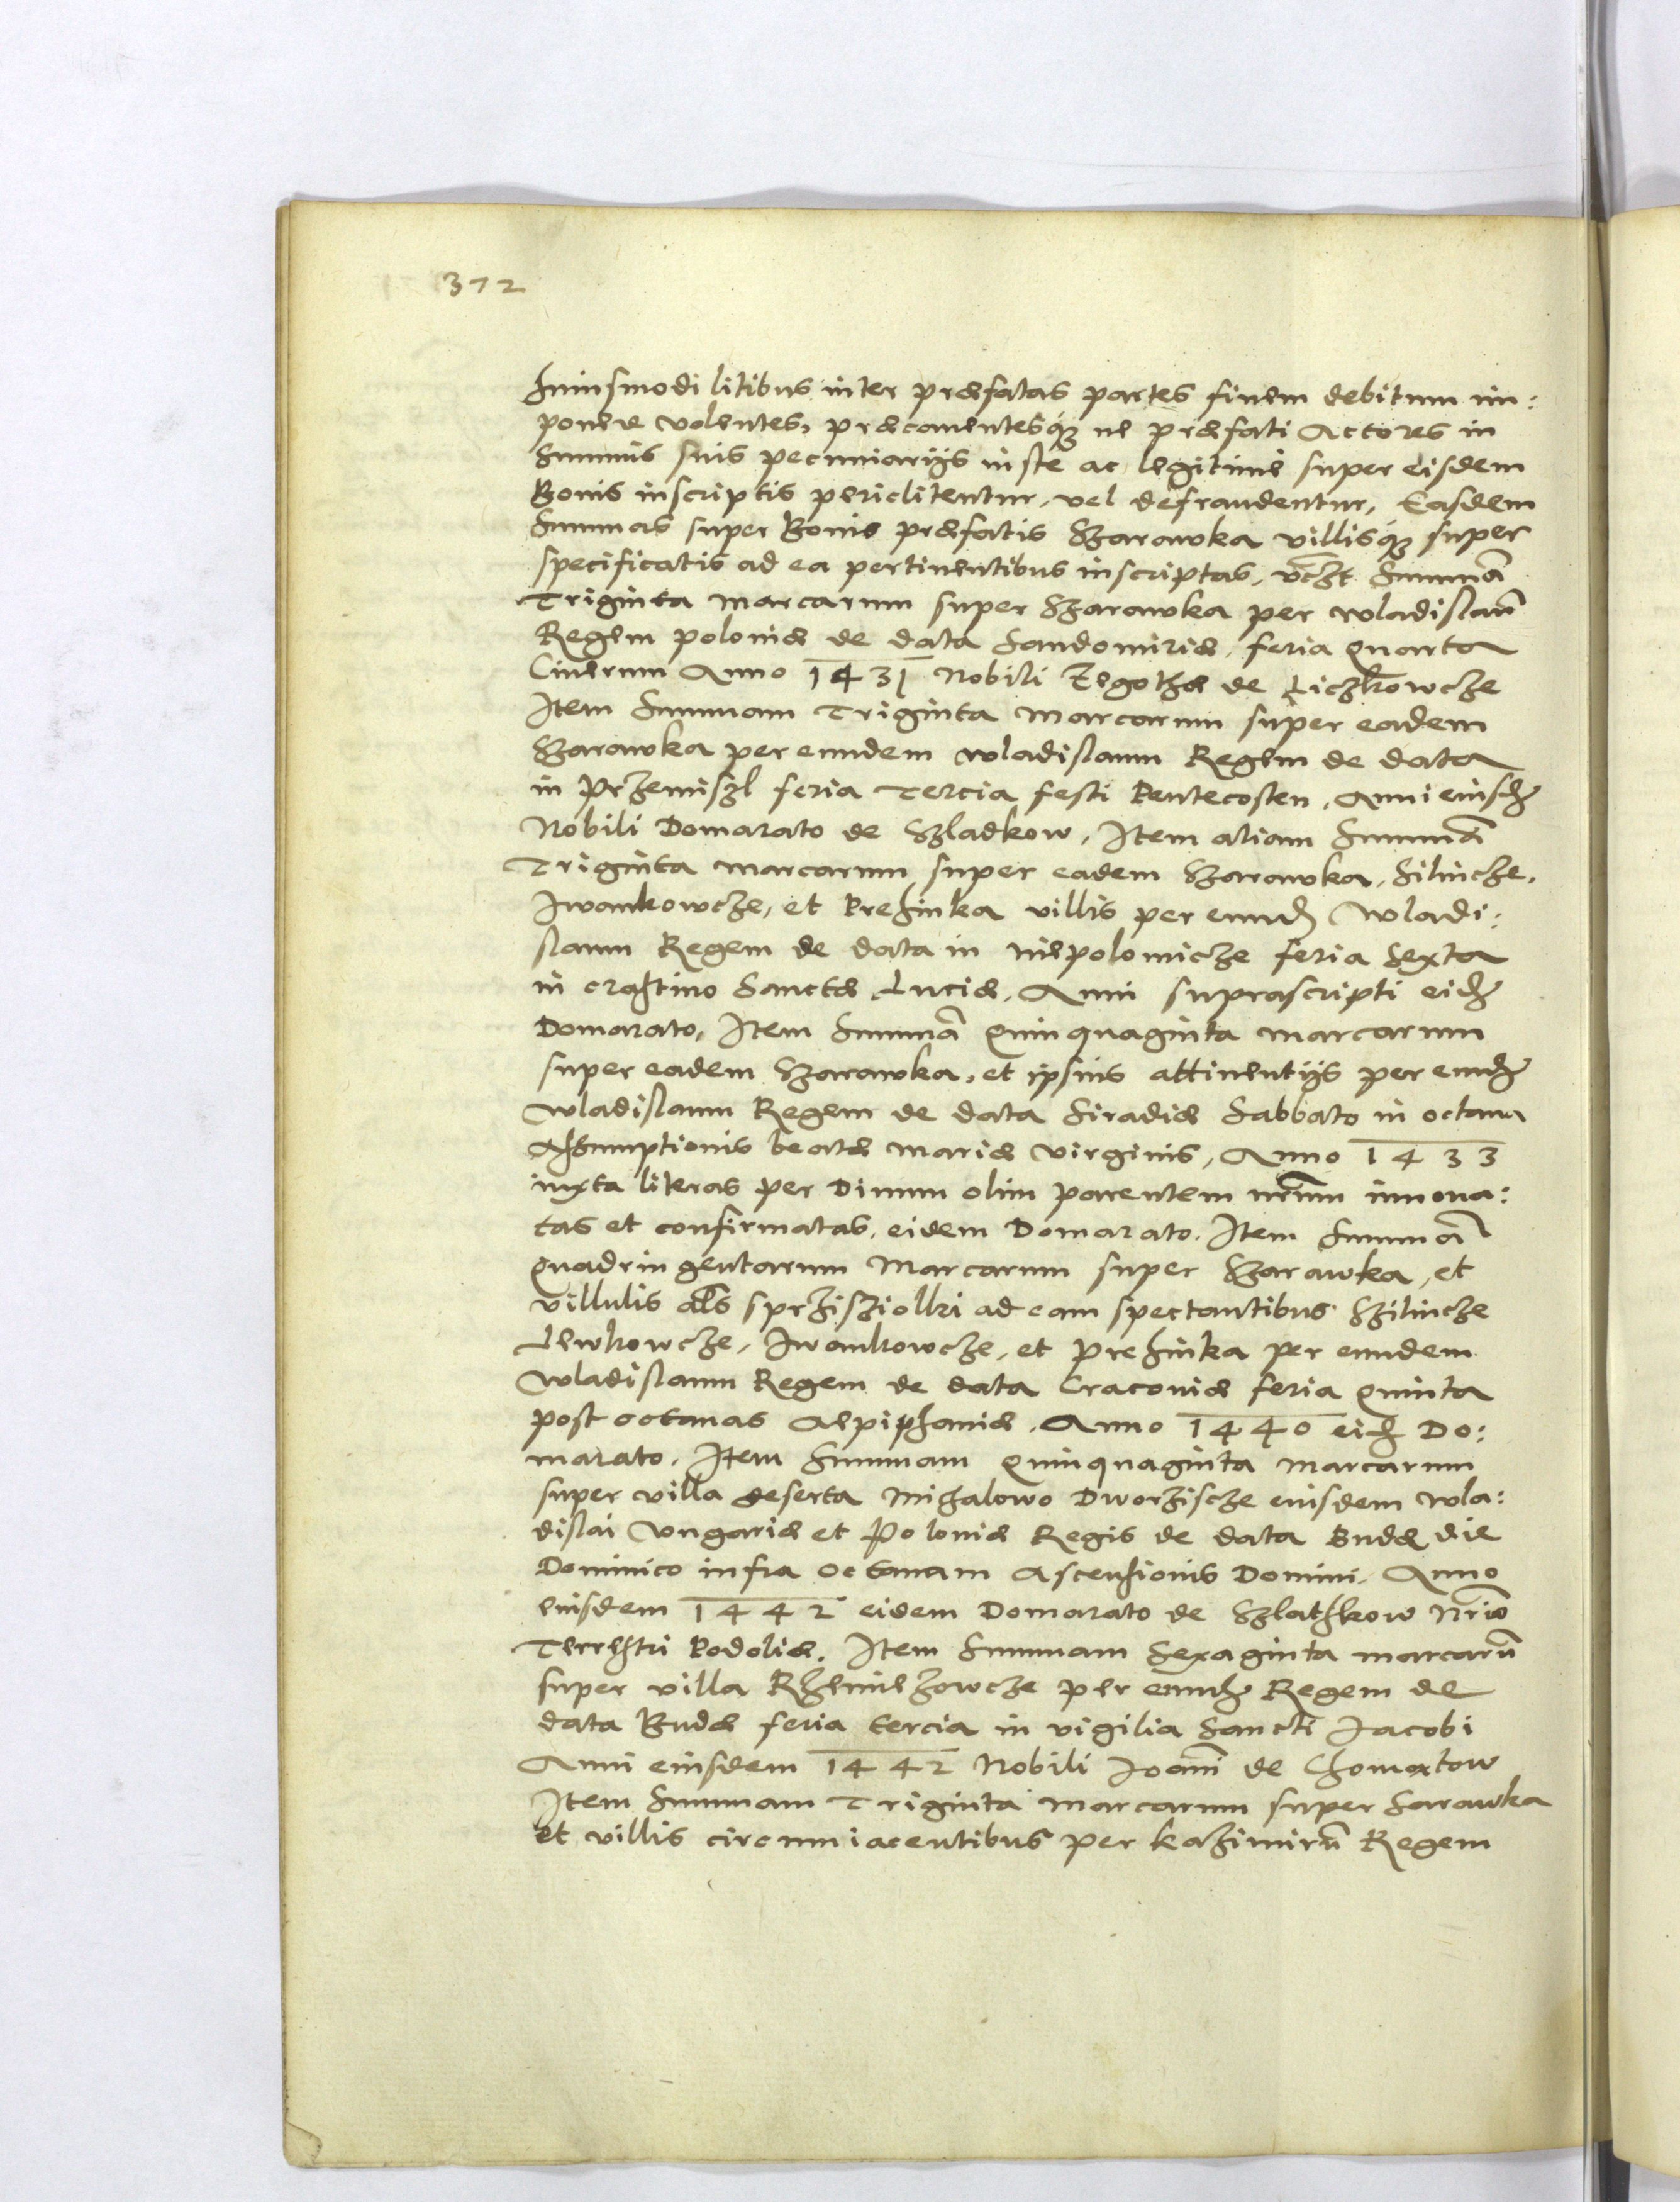 372
huiusmodi litibus inter præfatas partes finem debitum im:
ponere volentes, præcauentesq₃ ne præfati Actores in
summis suis pecuniarijs iuste ac legitime super eisdem
Bonis inscriptis periclitentur, vel defraudentur, Easdem
summas super Bonis præfatis Szarawka villisq₃ super
specificatis ad ea pertinentibus inscriptas, vczt Summā
Triginta marcarum super Szarawka per wladislaū
Regem poloniæ de data Sandomiriæ, feria quarta
Cinerum Anno 1431 Nobili Elgothæ de Liczkowcze
Item Summam Triginta marcarum super eadem
Szarawka per eundem wladislaum Regem de data
in Przemiszl feria Tercia festi Pentecosten, Anni eiusdꝫ
Nobili Domarato de Szladkow, Item aliam Summā
Triginta marcarum super eadem Szarawka, Silincze,
Iwankowcze, et Prehinka villis per eundꝫ Wladi:
slaum Regem de data in niepolomicze feria Sexta
in crastino Sanctæ Luciæ, Anni suprascripti eidꝫ
Domarato, Item Summā Quinquaginta marcarum
super eadem Szarawka, et ipsius attinentijs per eundꝫ
wladislaum Regem de data Siradiæ Sabbato in octaua
Assumptionis beatæ mariæ virginis, Anno 1433
iuxta literas per Diuum olim parentem nrūm innoua:
tas et confirmatas, eidem Domarato. Item Summā
quadringentarum Marcarum super Szarawka, et
villulis als sprzisziolki ad eam spectantibus Szilincze
Lewkowcze, Iwankowcze, et Prehinka per eundem
Wladislaum Regem de data Cracouiæ feria quinta
post octauas Aepiphaniæ, Anno 1440 eidꝫ Do:
marato. Item Summam Quinquaginta marcarum
super villa deserta Mihalowo Dworzyscze eiusdem wla:
dislai Vngariæ et Poloniæ Regis de data Budæ die
Dominico infra octauam Ascensionis Domini, Anno
eiusdem 1442 eidem Domarato de Szlathkow Nrio
Terrestri Podoliæ. Item Summam Sexaginta marcarū
super villa Rzemiezowcze per eundꝫ Regem de
data Budæ feria tercia in vigilia Sancti Iacobi
Anni eiusdem 1442 Nobili Ioāni de Chomextow
Item Summam Triginta marcarum super Sarawka
et villis circumiacentibus per Kazimirū Regem